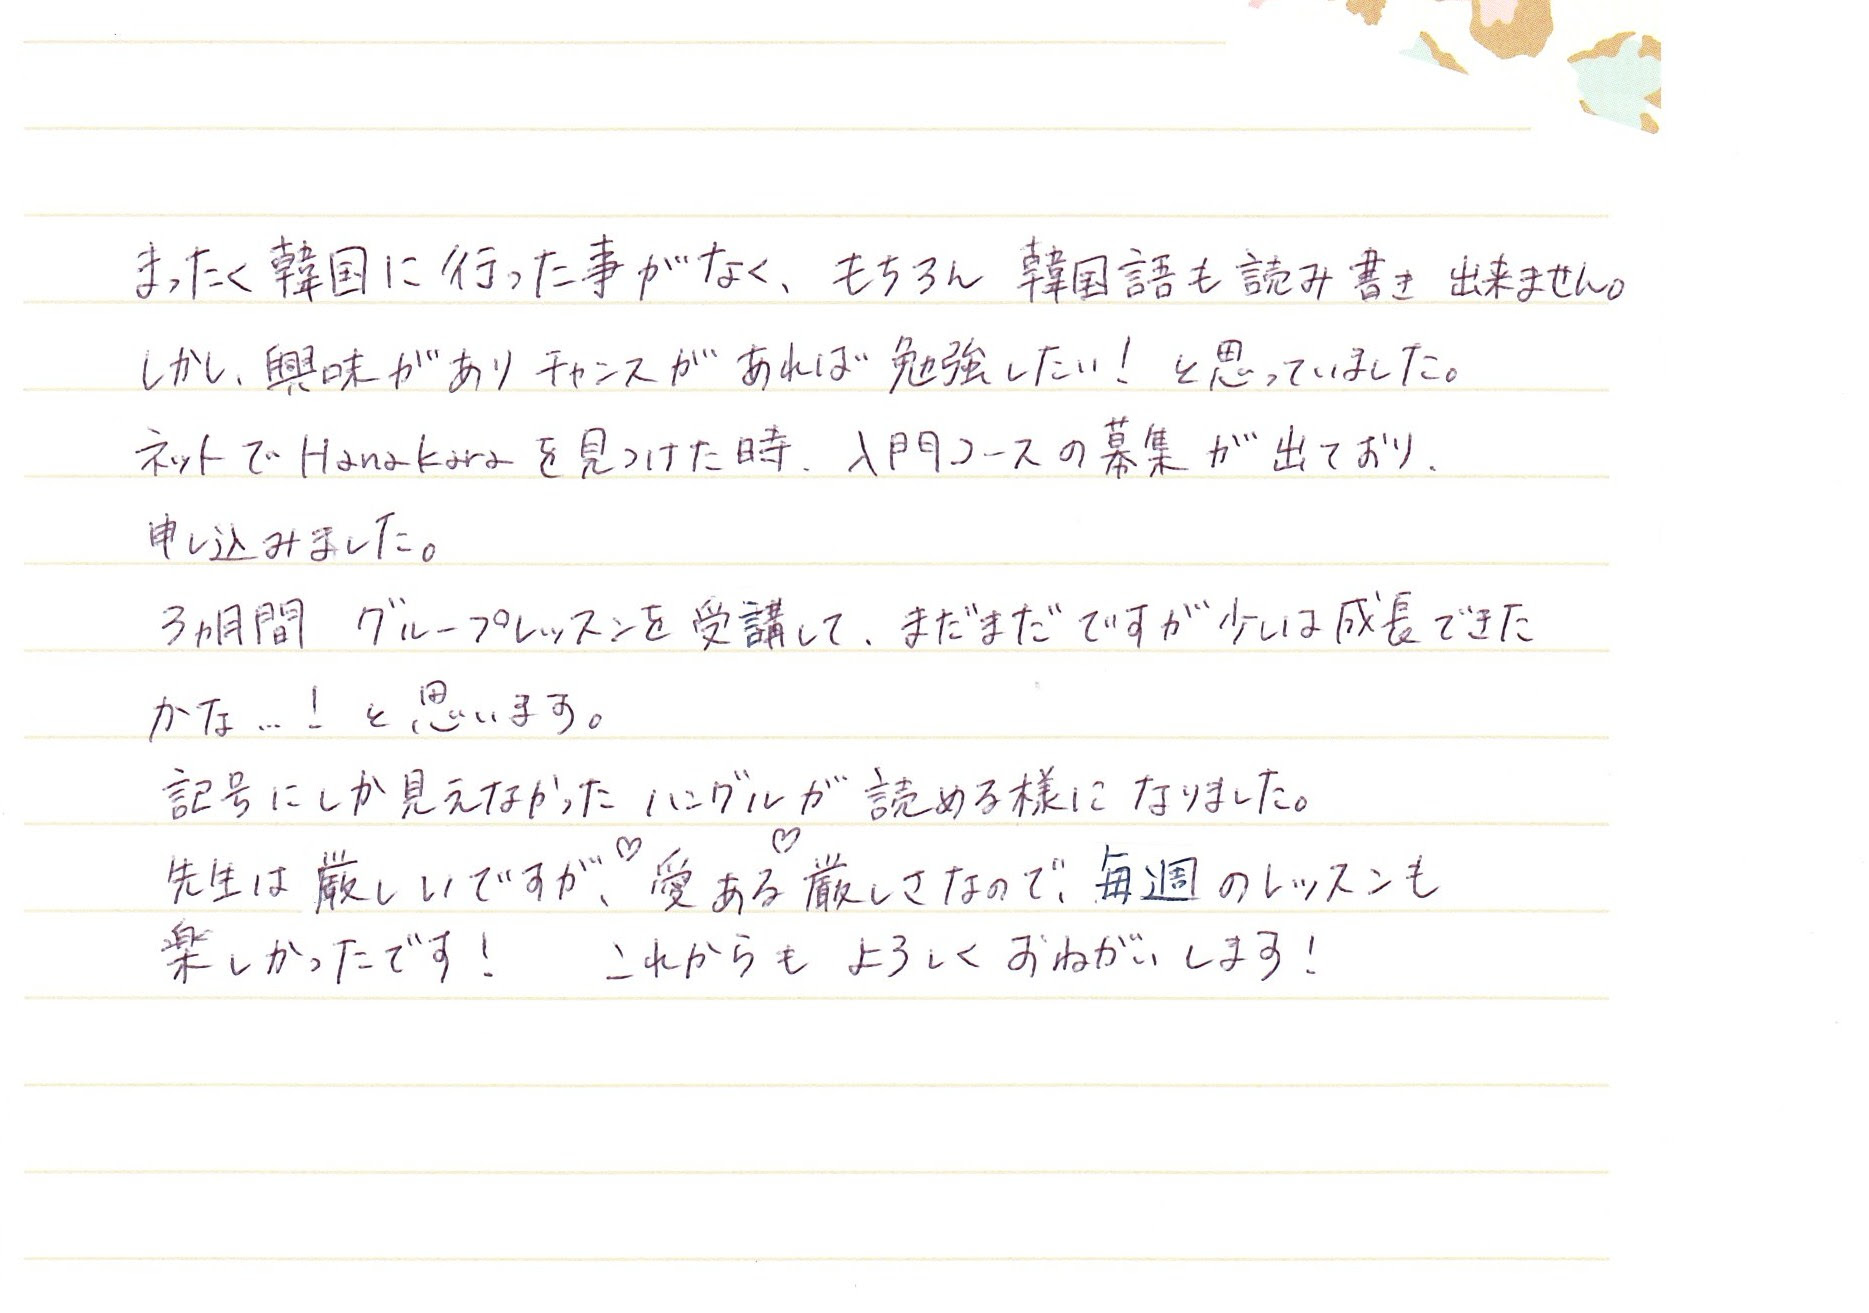 まったく韓国に行った事がなく、もちろん 韓国語も読み書き 出来ません。
しかし、興味がありチャンスがあれば勉強したい！と思っていました。
ネットでHanakaraを見つけた時、入門コースの募集が出ており、
申し込みました。
3ヵ月間 グループレッスンを受講して、まだまだですが少しは成長できた
かな…！と思います。
記号にしか見えなかったハングルが読める様になりました。
先生は厳しいですが、♡愛ある♡厳しさなので、毎週のレッスンも
楽しかったです！ これからも よろしく おねがいします！